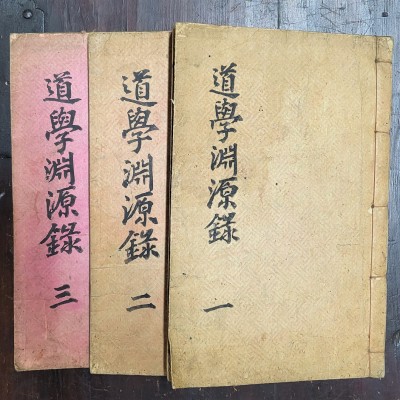 道學淵源錄 一
道學淵源錄 二
道學淵源錄 三